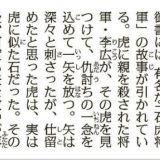 御書には、有名な「石虎将
軍」の故事が引かれてい
る。虎に親を殺された将
軍・李広が、その虎を見
つけて、仇討ちの一念を
込めて一矢を放つ。矢は
深々と刺さったが、仕留
めたと思った虎は、実は
虎に似た石だった。その